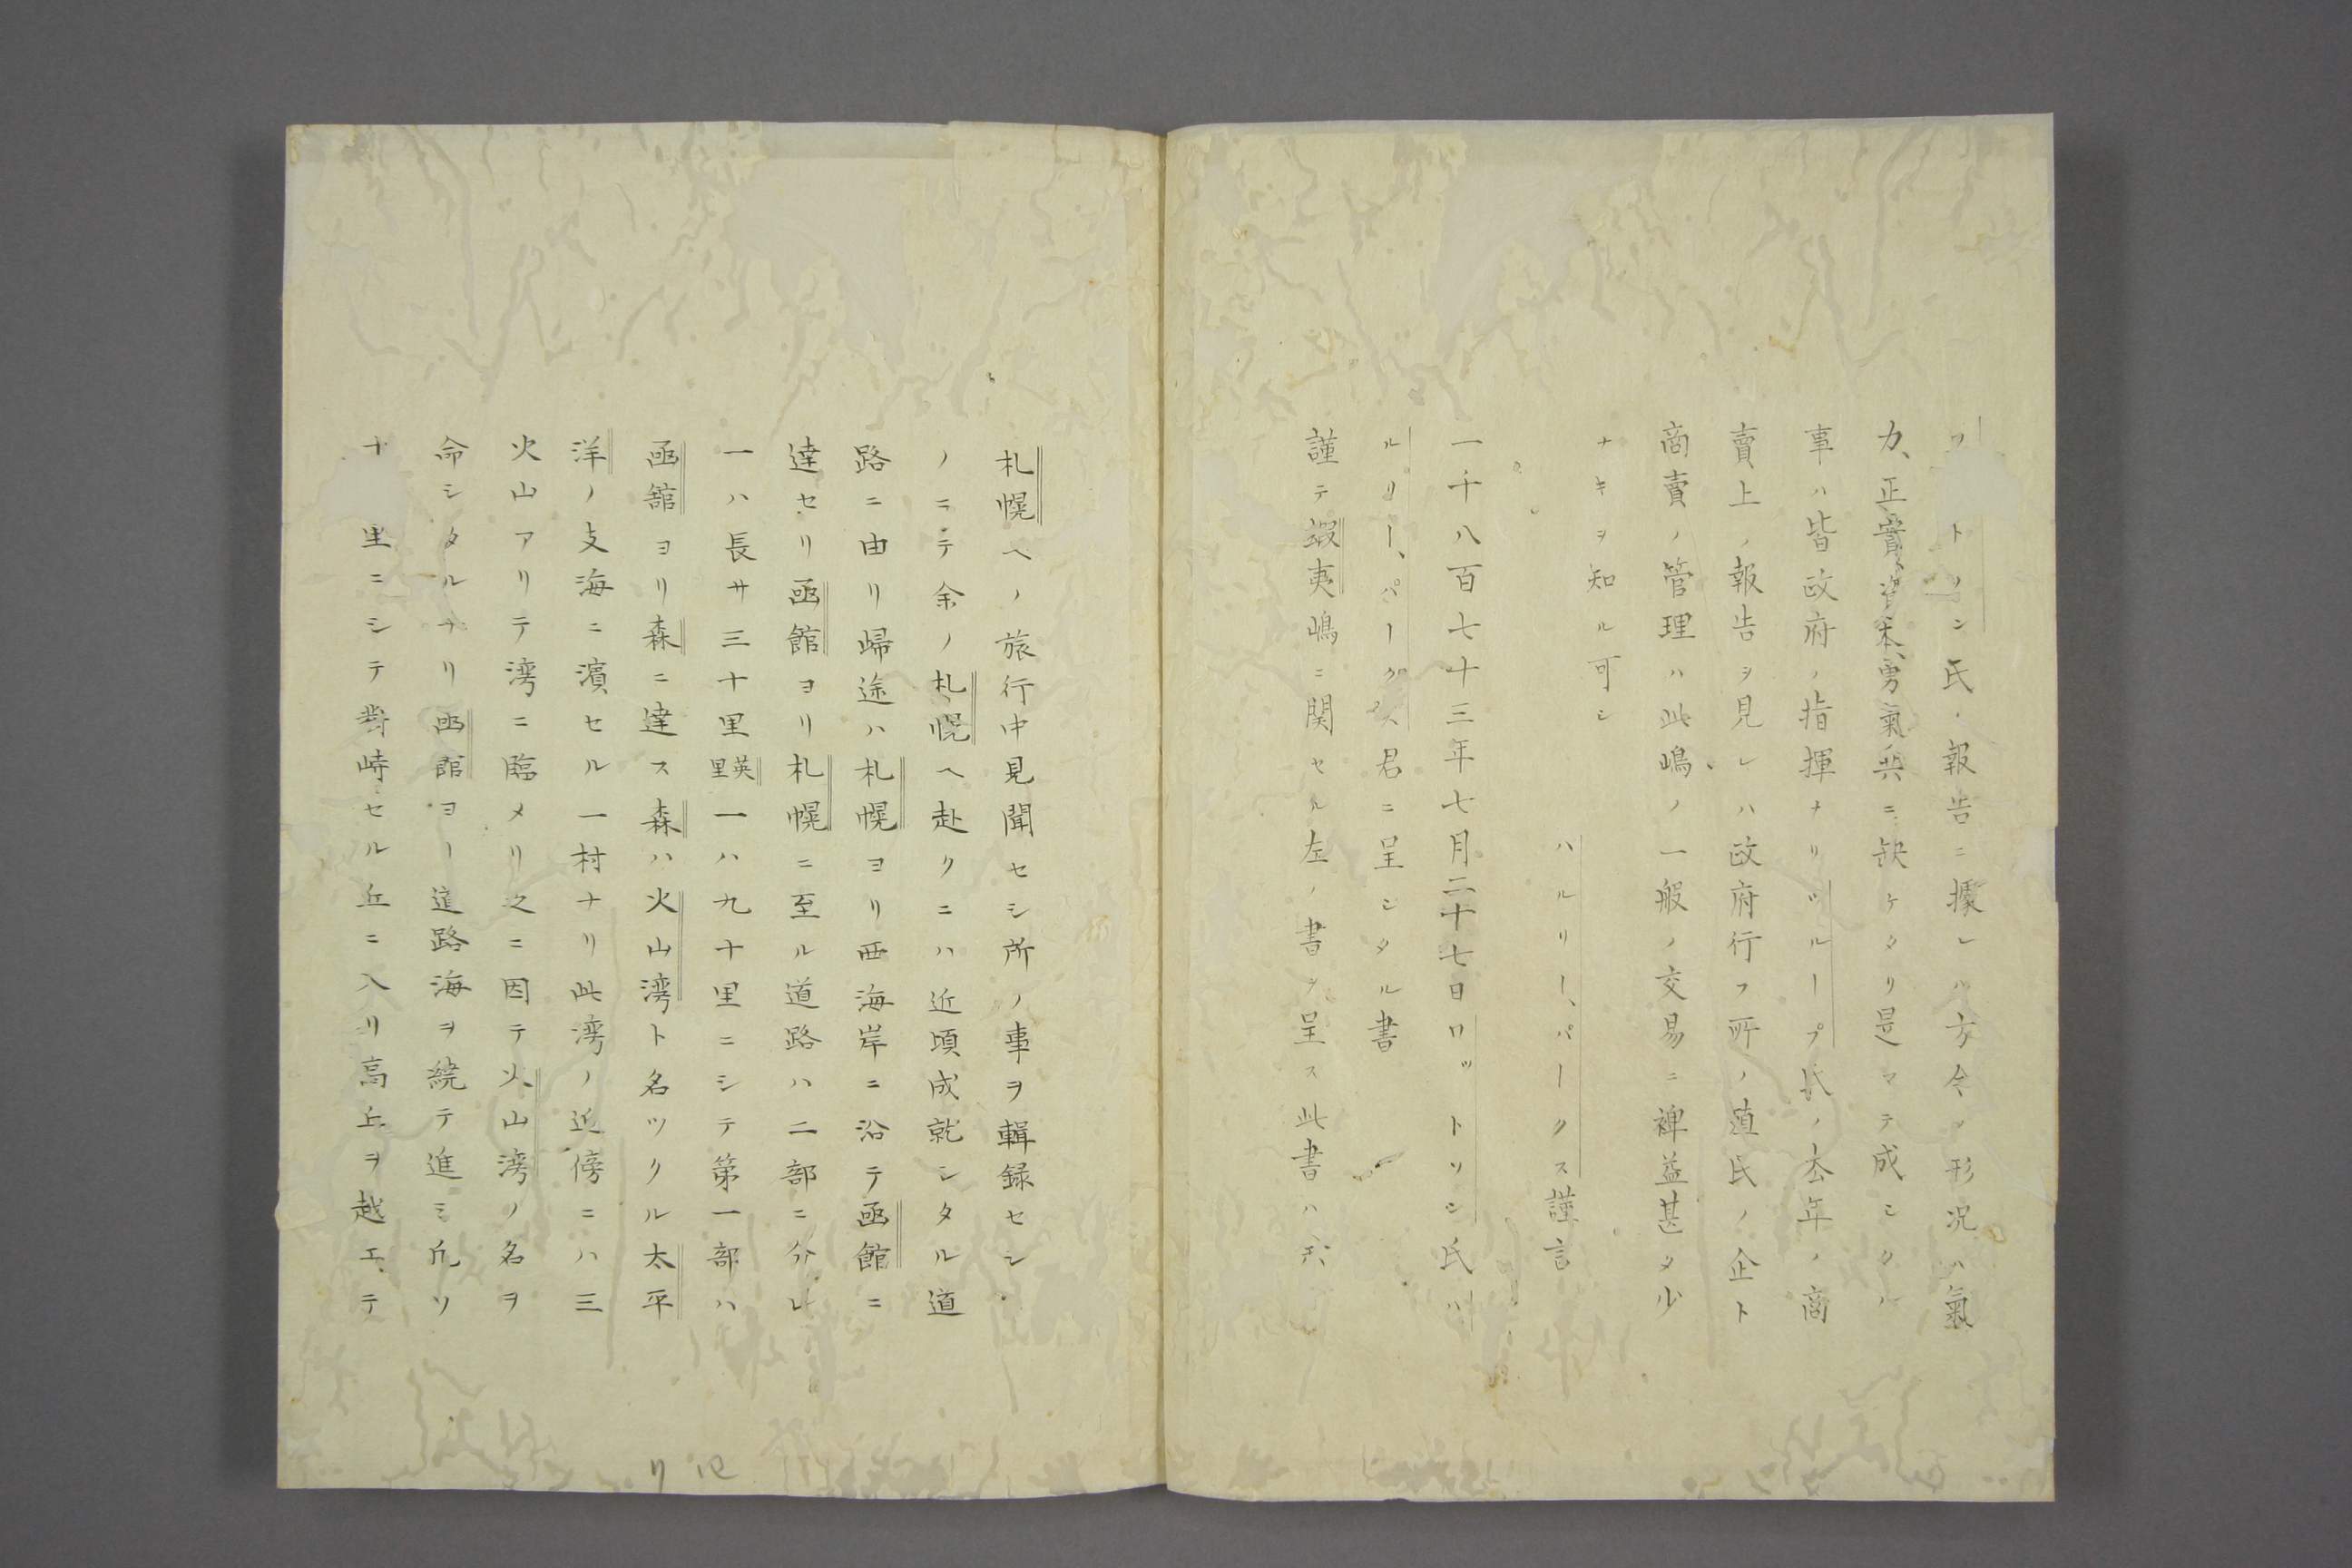 ツトソン氏ノ報告ニ據レハ方今ノ形况ハ氣
力、正實、資本、勇氣共ニ缺ケタリ是マテ成シタル
事ハ皆政府ノ指揮ナリツループ氏ノ去年ノ商
賣上ノ報告ヲ見レハ政府行フ所ノ殖民ノ企ト
商賣ノ管理ハ此嶋ノ一般ノ交易ニ裨益甚タ少
ナキヲ知ル可シ
ハルリー、パークス謹言
一千八百七十三年七月二十七日ロットソン氏ハ
ルリー、パークス君ニ呈シタル書
謹テ蝦夷嶋ニ関セル左ノ書ヲ呈ス此書ハ我
札幌ヘノ旅行中見聞セシ所ノ事ヲ輯録セシ
ノニテ余ノ札幌ヘ赴クニハ近頃成就シタル道
路ニ由リ歸途ハ札幌ヨリ西海岸ニ沿テ函館ニ
達セリ函館ヨリ札幌ニ至ル道路ハ二部ニ分レ
一ハ長サ三十里英里一ハ九十里ニシテ第一部ハ
函舘ヨリ森ニ達ス森ハ火山湾ト名ツクル太平
洋ノ支海ニ濱セル一村ナリ此湾ノ近傍ニハ三
火山アリテ湾ニ臨メリ之ニ因テ火山湾ノ名ヲ
命シタルナリ函館ヨリ道路海ヲ繞テ進ミ凡ソ
十里ニシテ對峙セル丘ニ入リ高丘ヲ越エテ